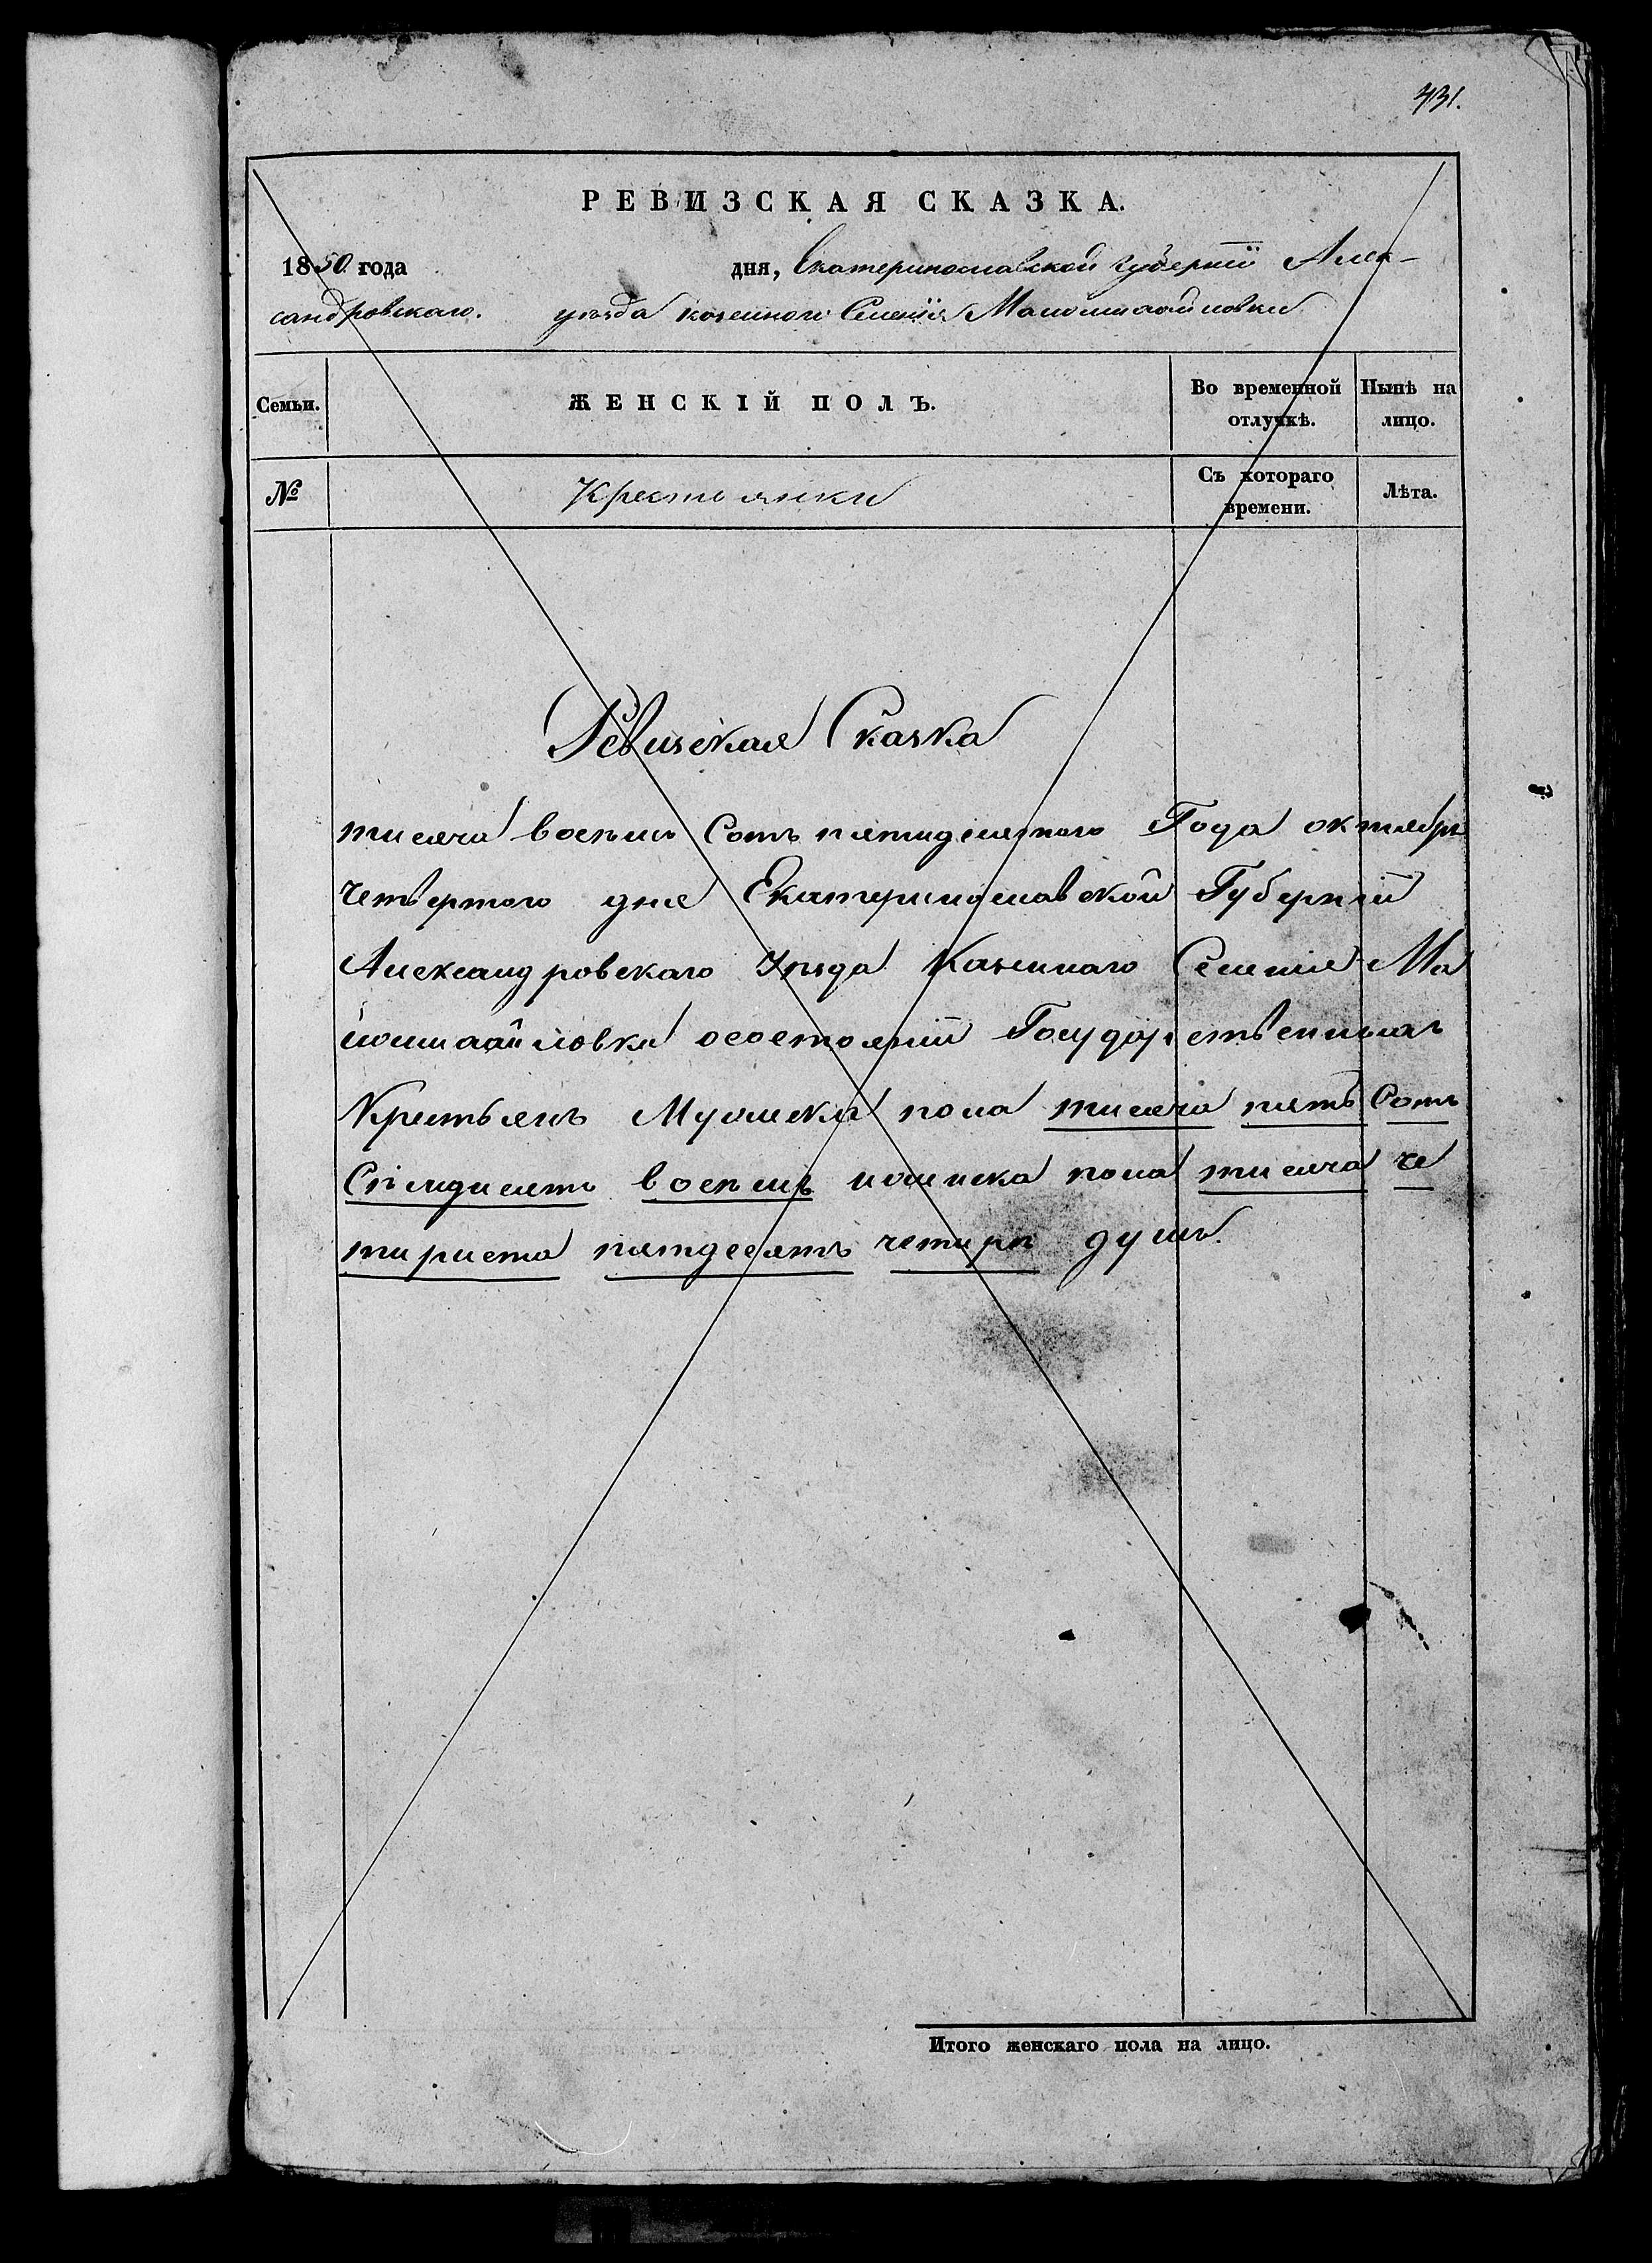 431.
РЕВИЗСКАЯ СКАЗКА.
1850 года дня, Екатеринославской губерніи Алек-
сандровскаго. уѣзда казенного Селенія Маломихайловки
Семьи. ЖЕНСКІЙ ПОЛЪ. Во временной отлучкѣ. Нынѣ на лицо.
№ Крестьянки Съ котораго времени. Лѣта.
Ревизская Сказка
тисяча восемь Сотъ пятидесятого Года октября
Четвертого дня Екатеринославской Губерніи
Александровскаго Уѣзда Казеннаго Селенія Ма
ломихайловки осостояніи Государственныхъ
Крестьянъ Мужска пола тисяча пять Сотъ
Сѣмдисятъ восемь иженска пола тисяча че
тириста пятдесятъ четирѣ душъ.
Итого женскаго пола на лицо.